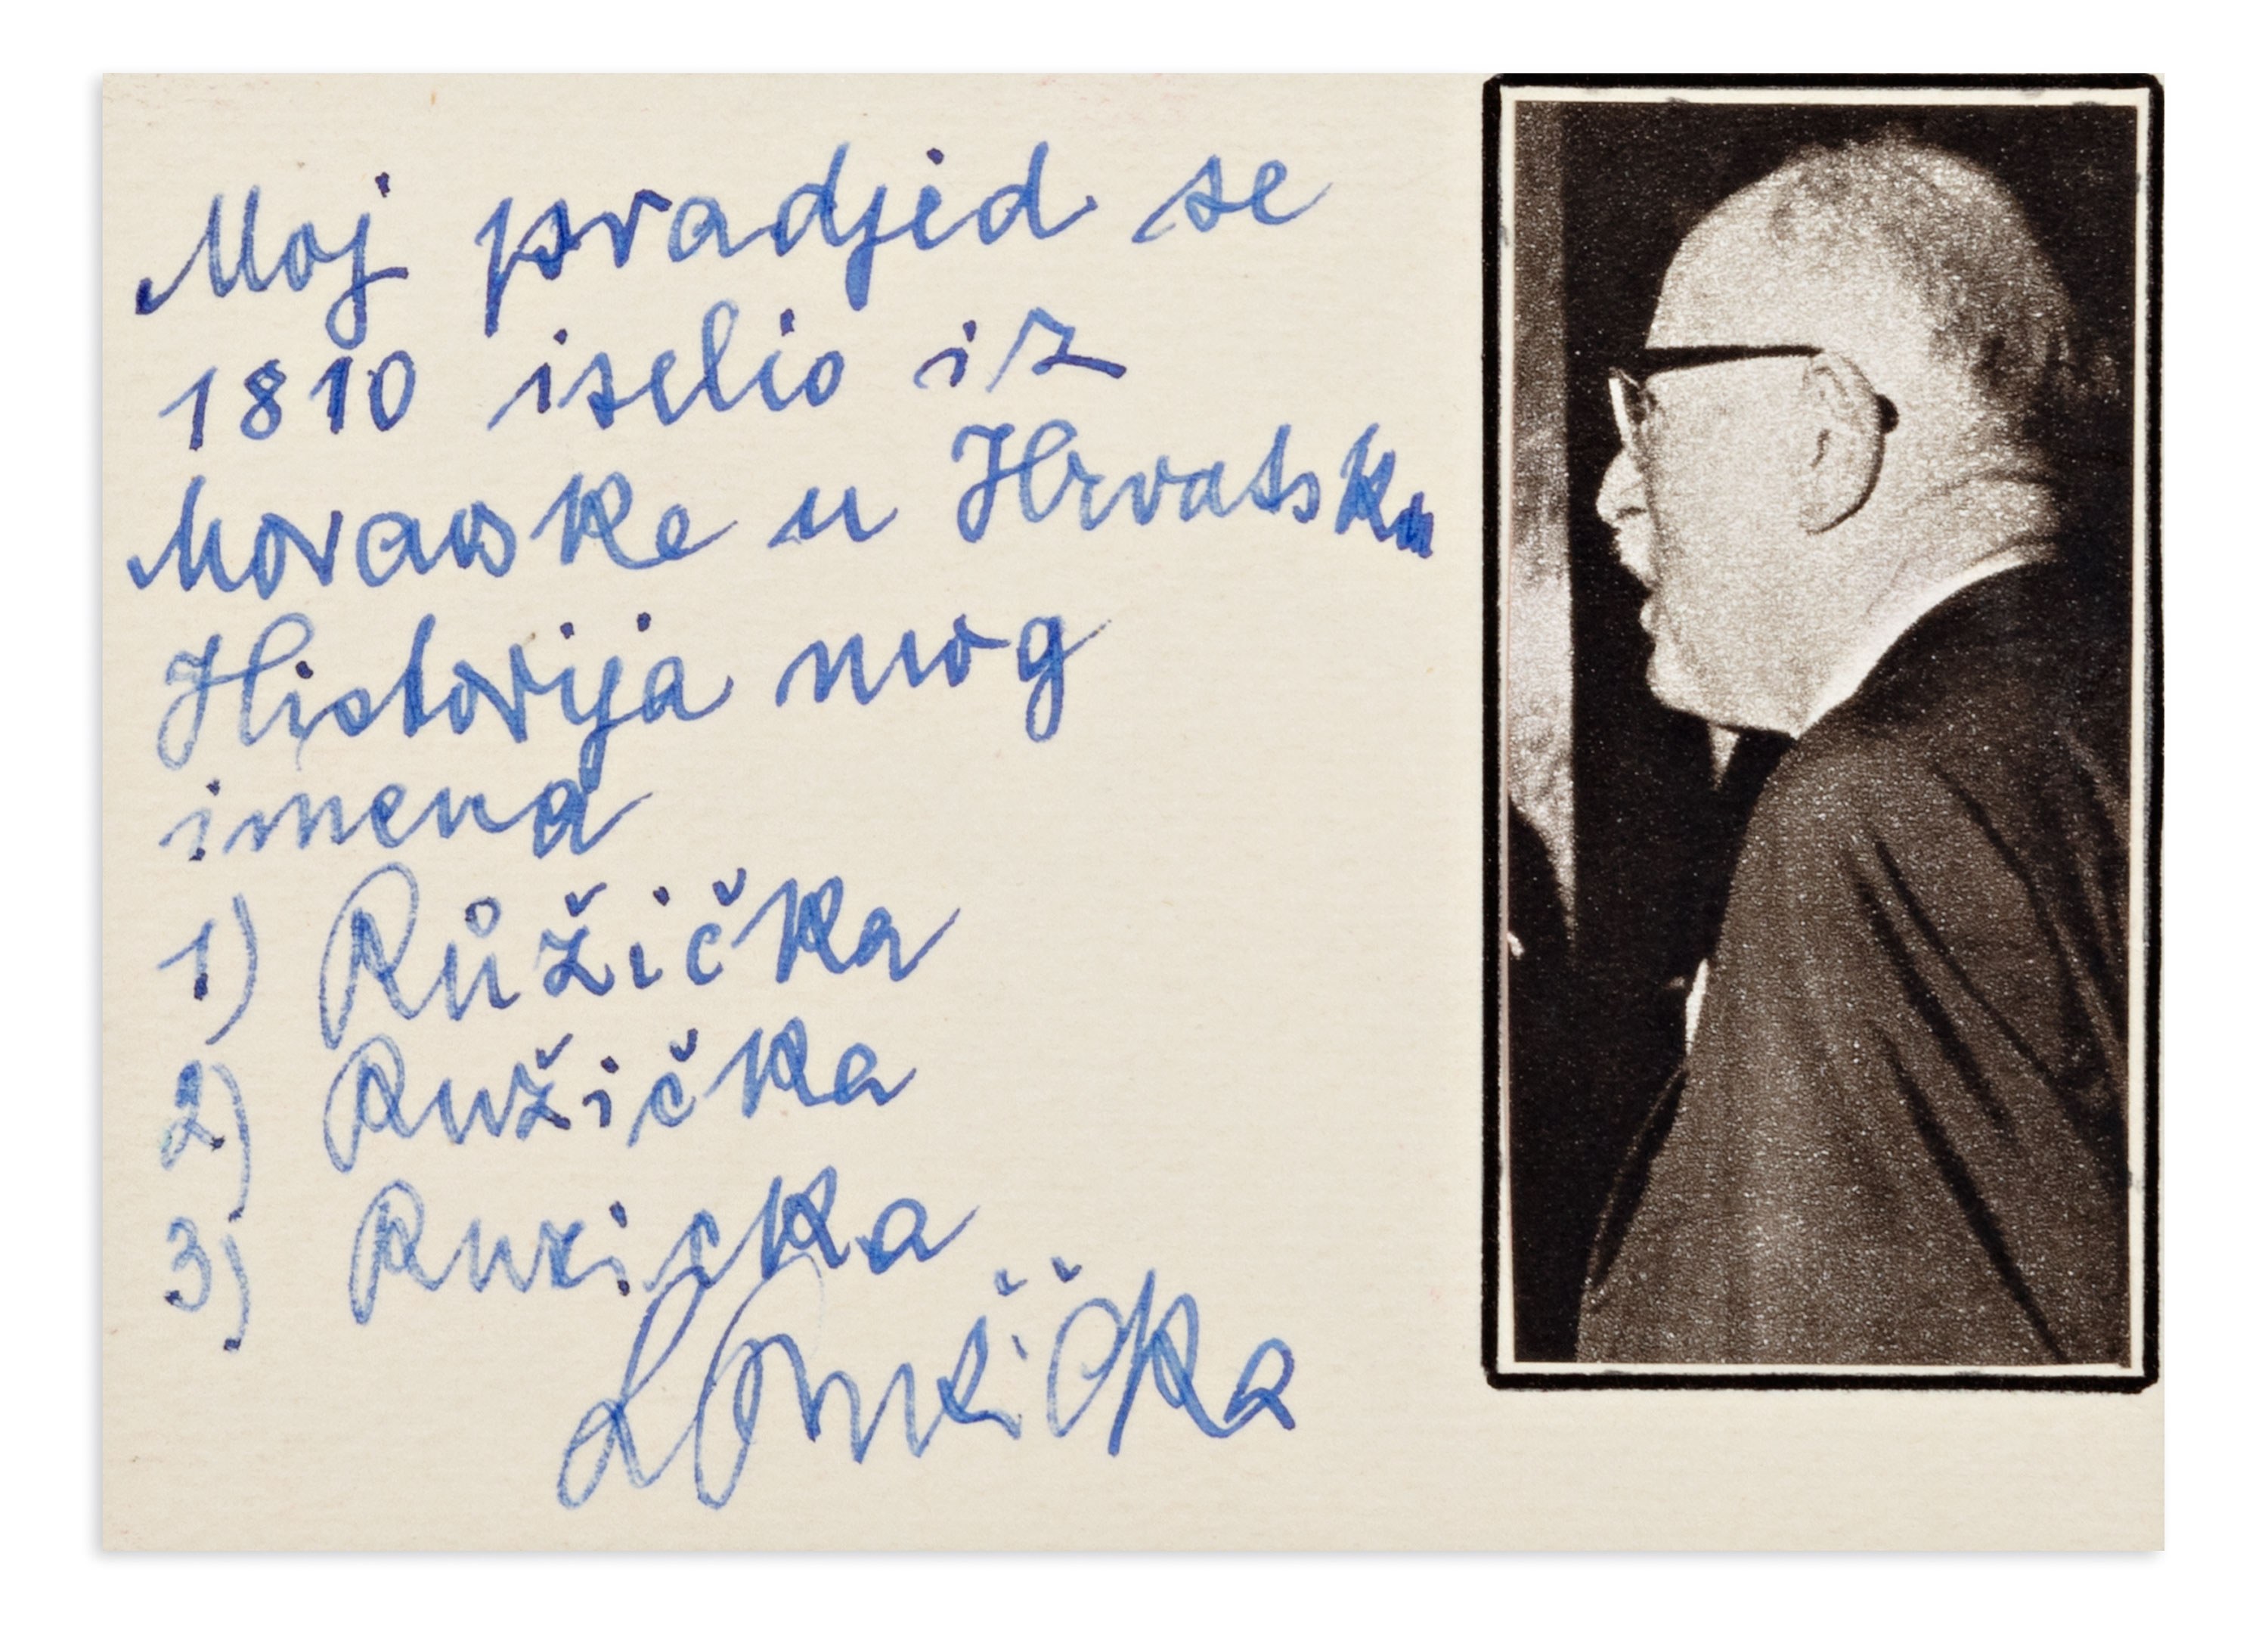 Moj pradjed se
1810 iselio iz
Moravske u Hrvatsku
Historija mog
imena
1) Růžička
2) Ružička
3) Ruzicka
L Ružička